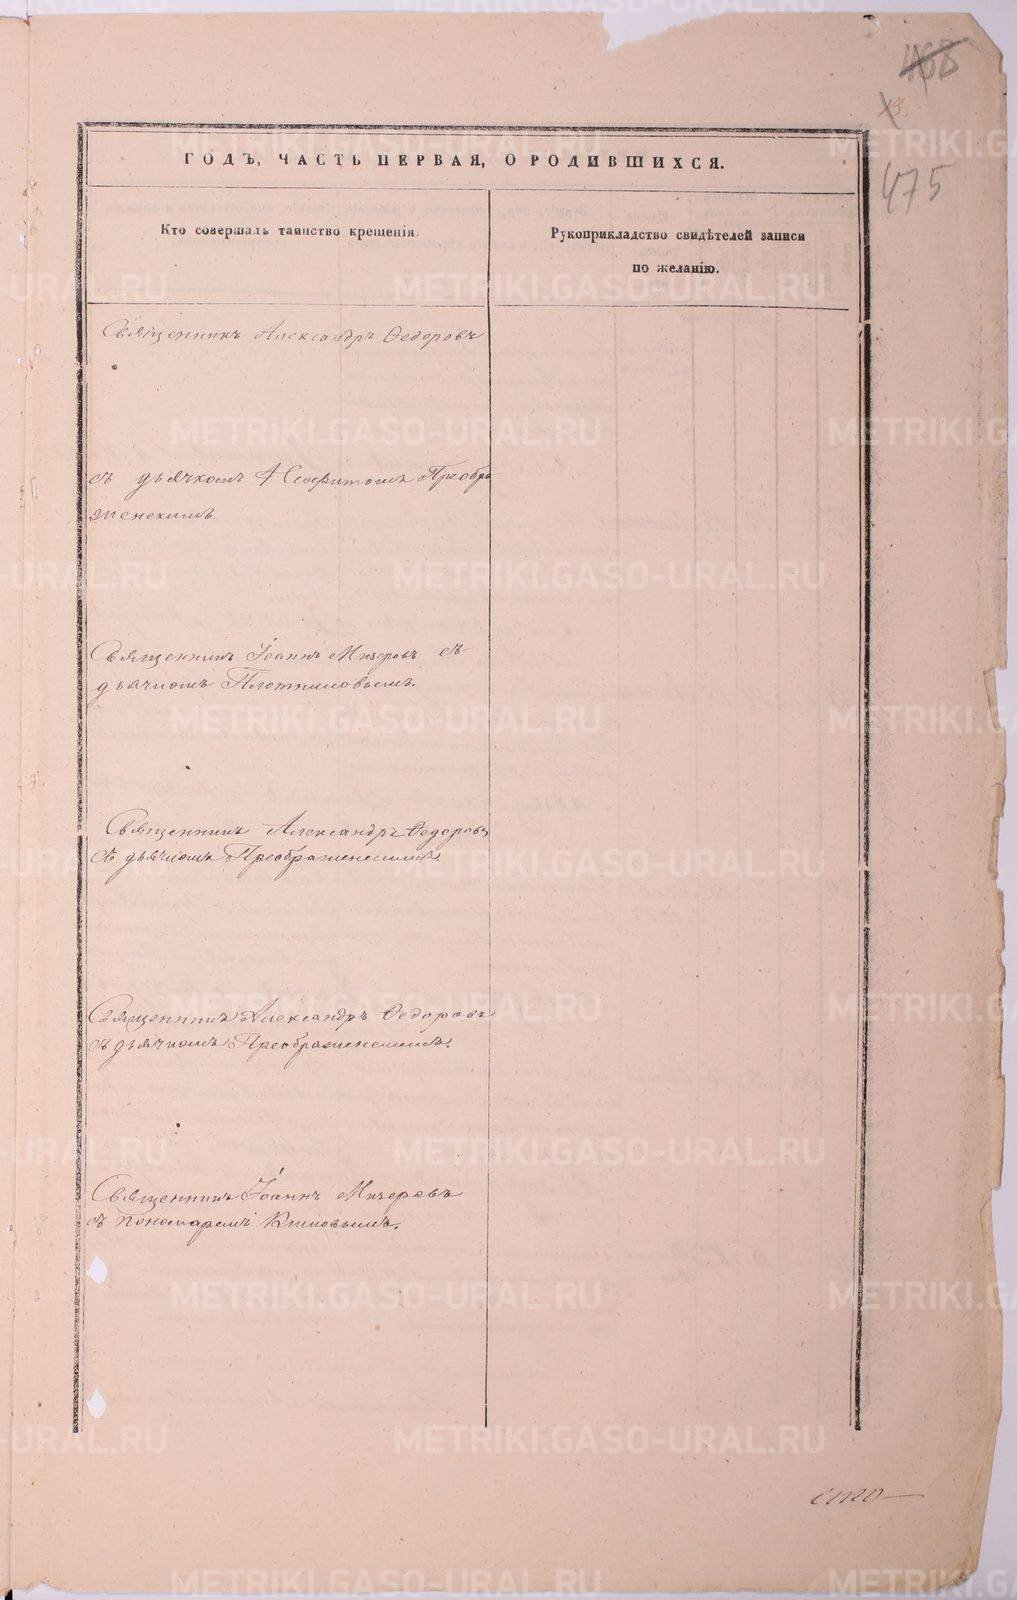 468
13
475
ГОДЪ, ЧАСТЬ ПЕРВАЯ, О РОДИВШИХСЯ.
Кто совершалъ таинство крещенія.
Рукоприкладство свидѣтелей записи
по желанію.
Священникъ Александръ Ѳедоровъ
съ дьячкомъ Неофитомъ Преобра
женскимъ.
Священникъ Іоаннъ Мичеровъ съ
дьячкомъ Плотниковымъ.
Священникъ Александръ Ѳедоровъ
съ дьячкомъ Преображенскимъ.
Священникъ Александръ Ѳедоровъ
съ дьячкомъ Преображенскимъ.
Священникъ Іоаннъ Мичеровъ
съ пономаремъ
METRIKI.GASO-URAL.RU